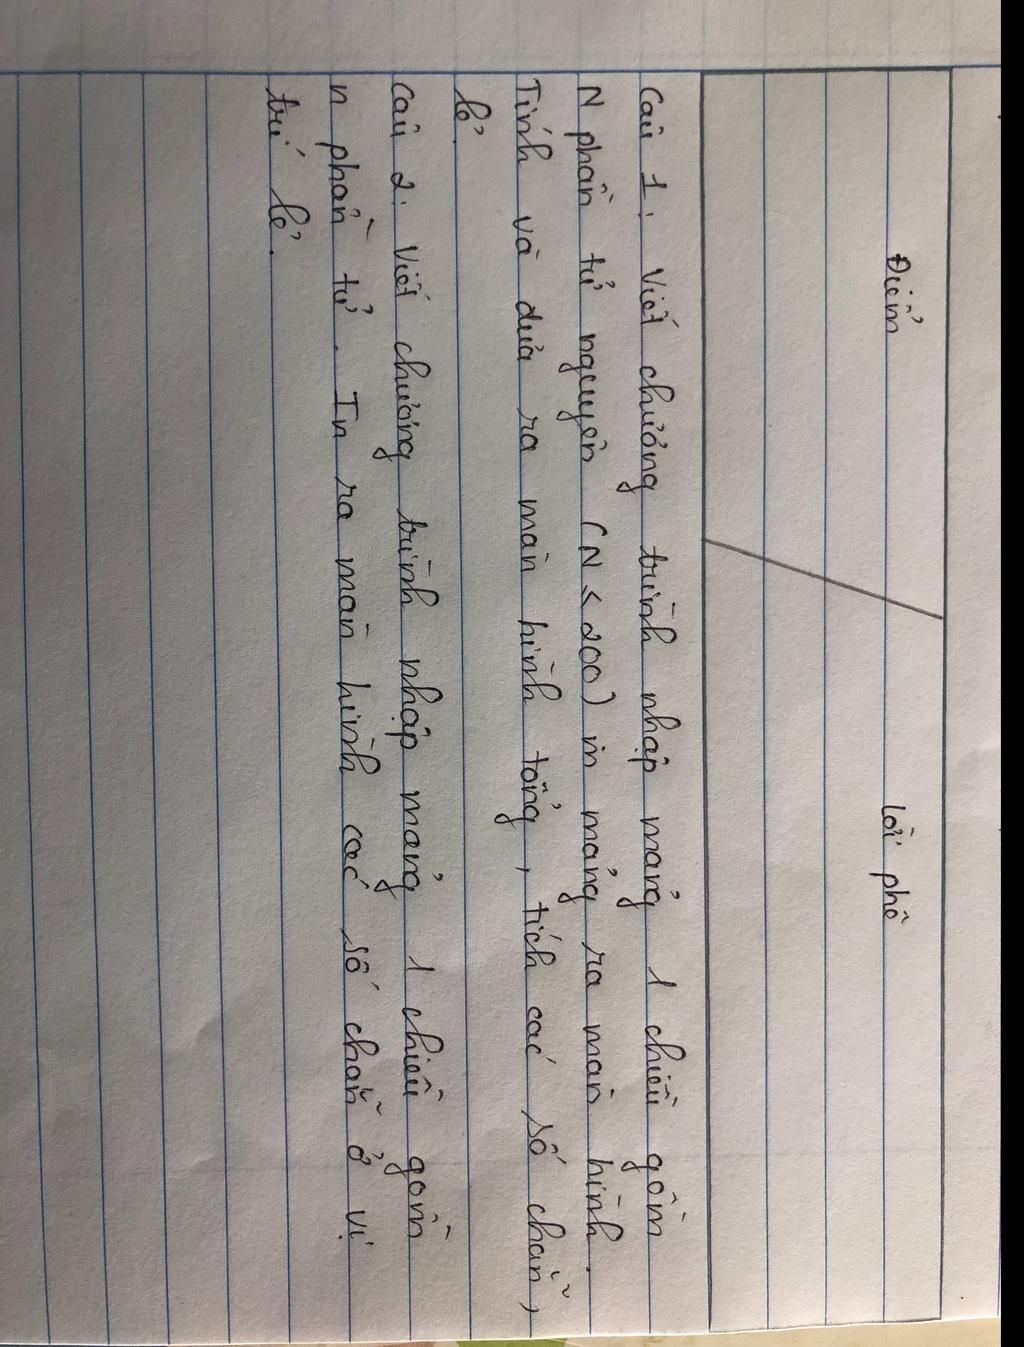 Điểm Lời phê
Câu 1: Viết chương trình nhập mảng 1 chiều gồm
N phần tử nguyên (N < 200) in mảng ra màn hình.
Tính và đưa ra màn hình tổng, tích các số chẵn,
lẻ.
Câu 2. Viết chương trình nhập mảng 1 chiều gồm
n phần tử. In ra màn hình các số chẵn ở vị
trí lẻ.